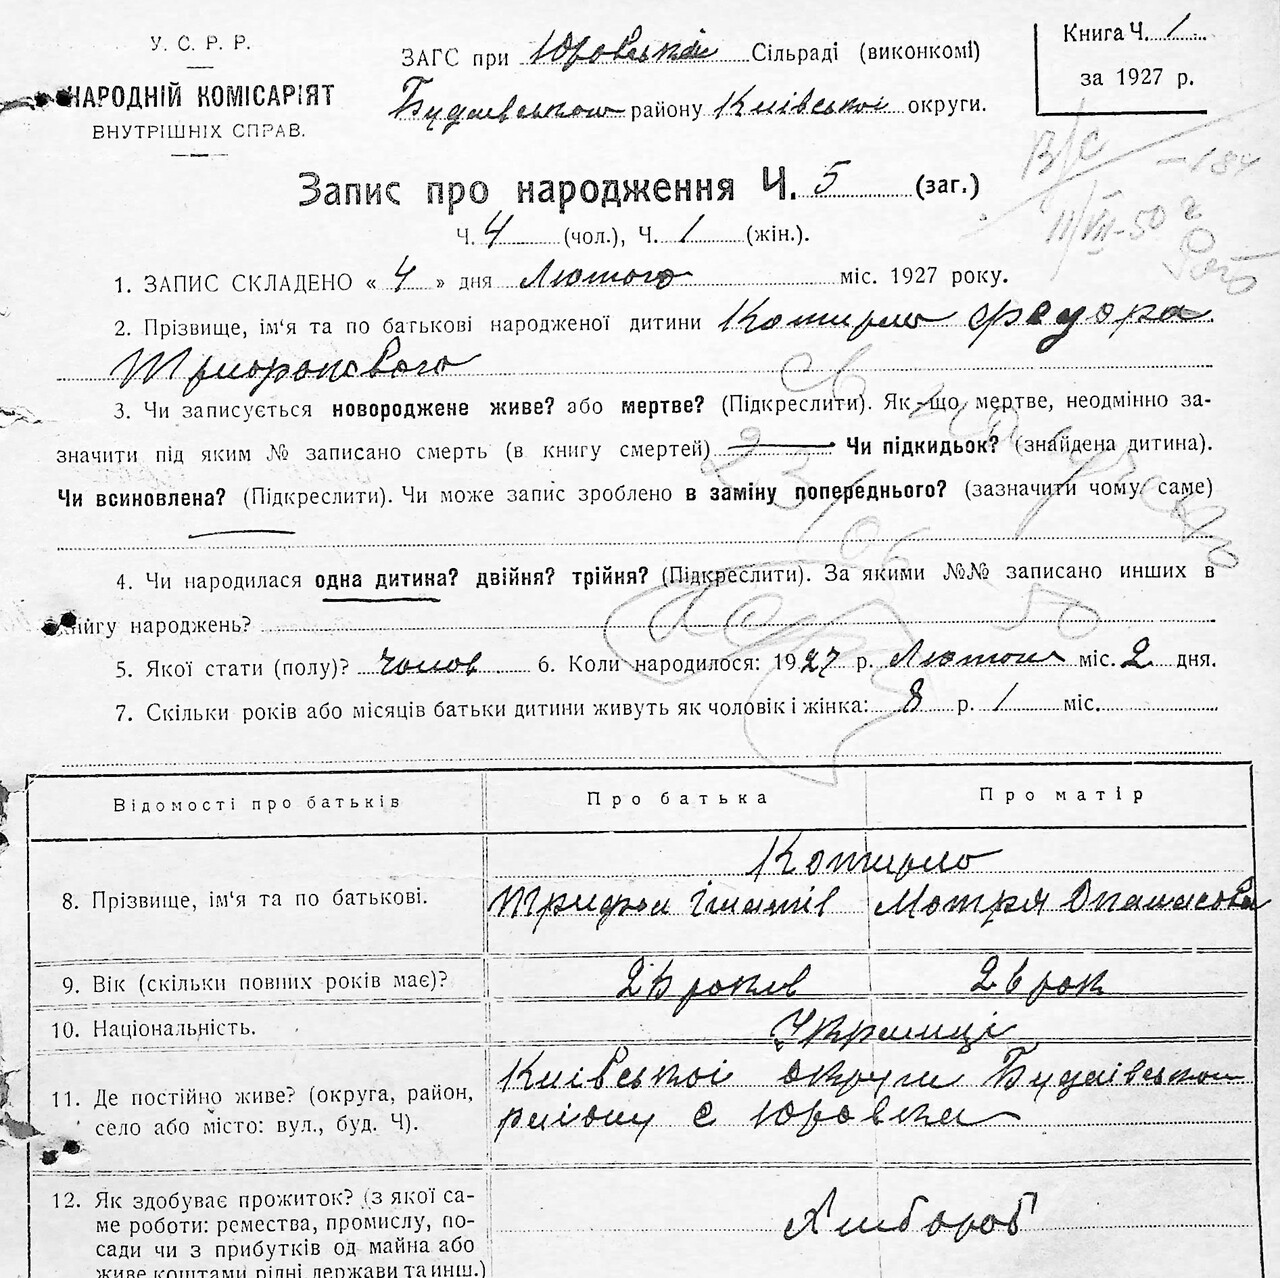 У. С. Р. Р.
НАРОДНІЙ КОМІСАРІЯТ
ВНУТРІШНІХ СПРАВ.
ЗАГС при Юровській Сільраді (виконкомі)
Будаївського району Київської округи.
Книга Ч. 1
за 1927 р.
Запис про народження Ч. 5 (заг.)
Ч. 4 (чол.), Ч. 1 (жін.).
1. ЗАПИС СКЛАДЕНО « 4 » дня Лютого міс. 1927 року.
2. Прізвище, ім'я та по батькові народженої дитини Котирло Федора
3. Чи записується новороджене живе? або мертве? (Підкреслити). Як-що мертве, неодмінно за-
значити під яким № записано смерть (в книгу смертей) Чи підкидьок? (знайдена дитина).
Чи всиновлена? (Підкреслити). Чи може запис зроблено в заміну попереднього? (зазначити чому саме)
4. Чи народилася одна дитина? двійня? трійня? (Підкреслити). За якими №№ записано инших в
книгу народжень?
23/06 50
5. Якої стати (полу)? чолов 6. Коли народилося: 1927 р. Лютого міс. 2 дня.
7. Скільки років або місяців батьки дитини живуть як чоловік і жінка: 8 р. 1 міс.
Відомості про батьків Про батька Про матір
Котирло
8. Прізвище, ім'я та по батькові. Трифон Гнатів Мотря Опанасова
9. Вік (скільки повних років має)? років рок
10. Національність. Українці
11. Де постійно живе? (округа, район,
село або місто: вул., буд. Ч).
Київської округи Будаївського
району с Юровка
12. Як здобуває прожиток? (з якої са-
ме роботи: ремества, промислу, по-
сади чи з прибутків од майна або
живе коштами рідні держави та инш.)
Хлібороб